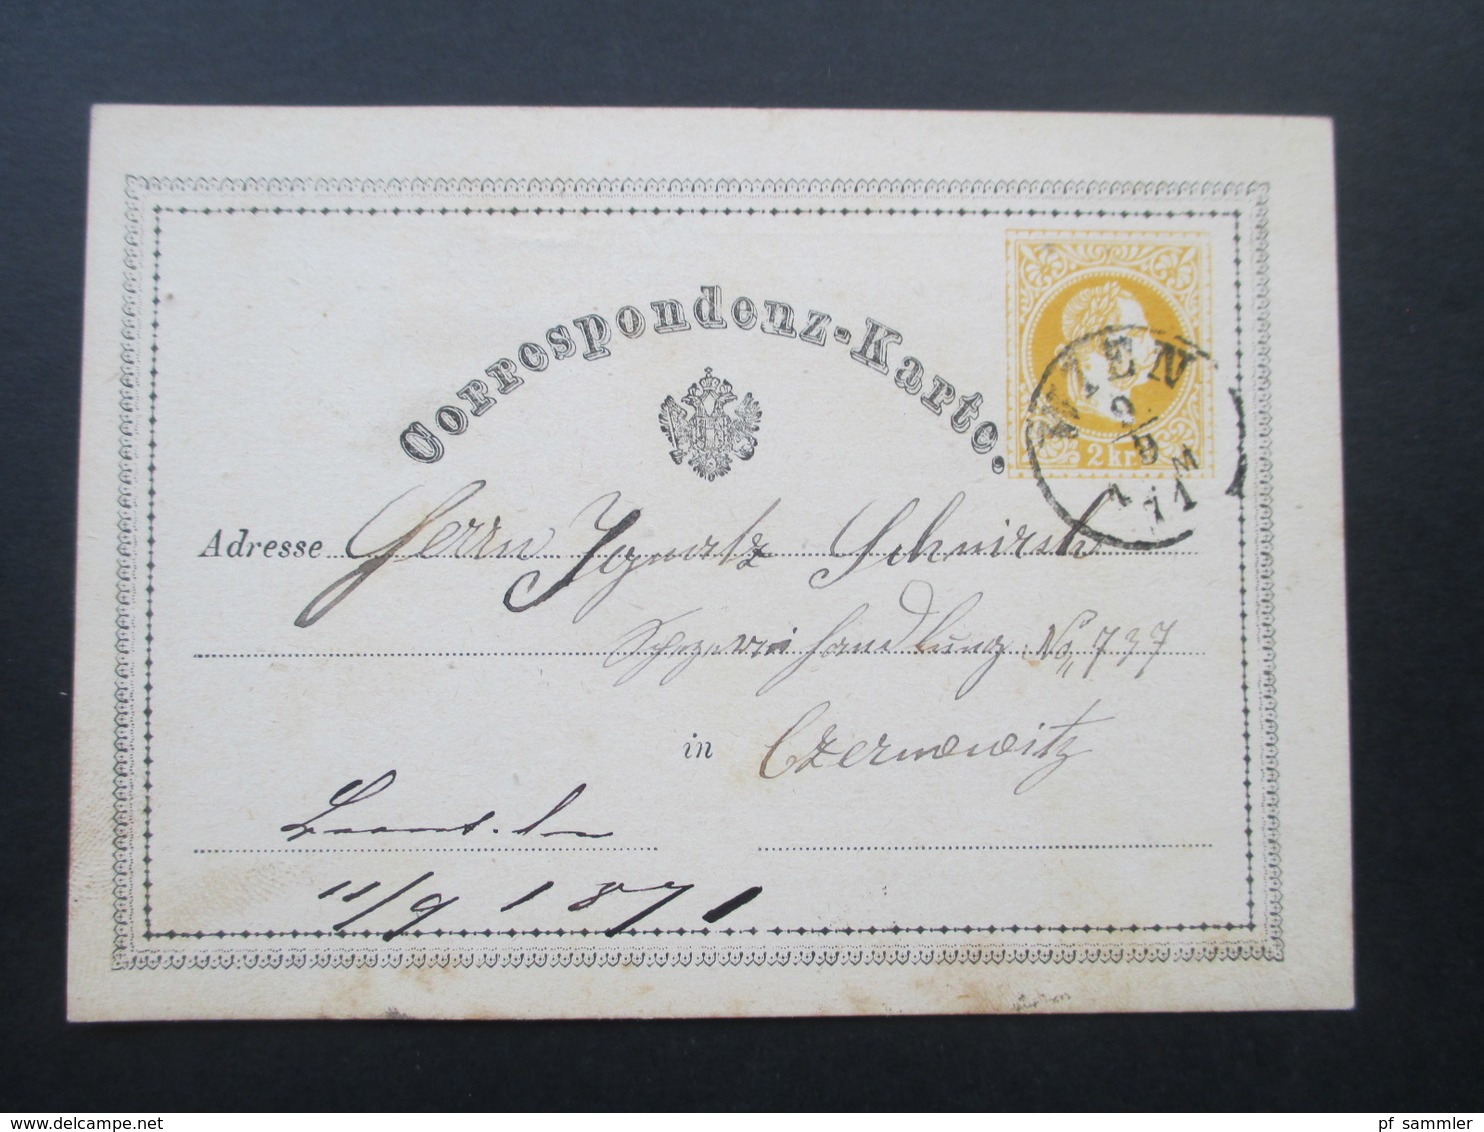 Correspondenz-Karte.
2 kr.
WIEN
9
9
1 M
71
Adresse Herrn Ignatz Schnirch
handlung No 737
in Czernowitz
11/9 1871
www.delcampe.net
pf_sammler